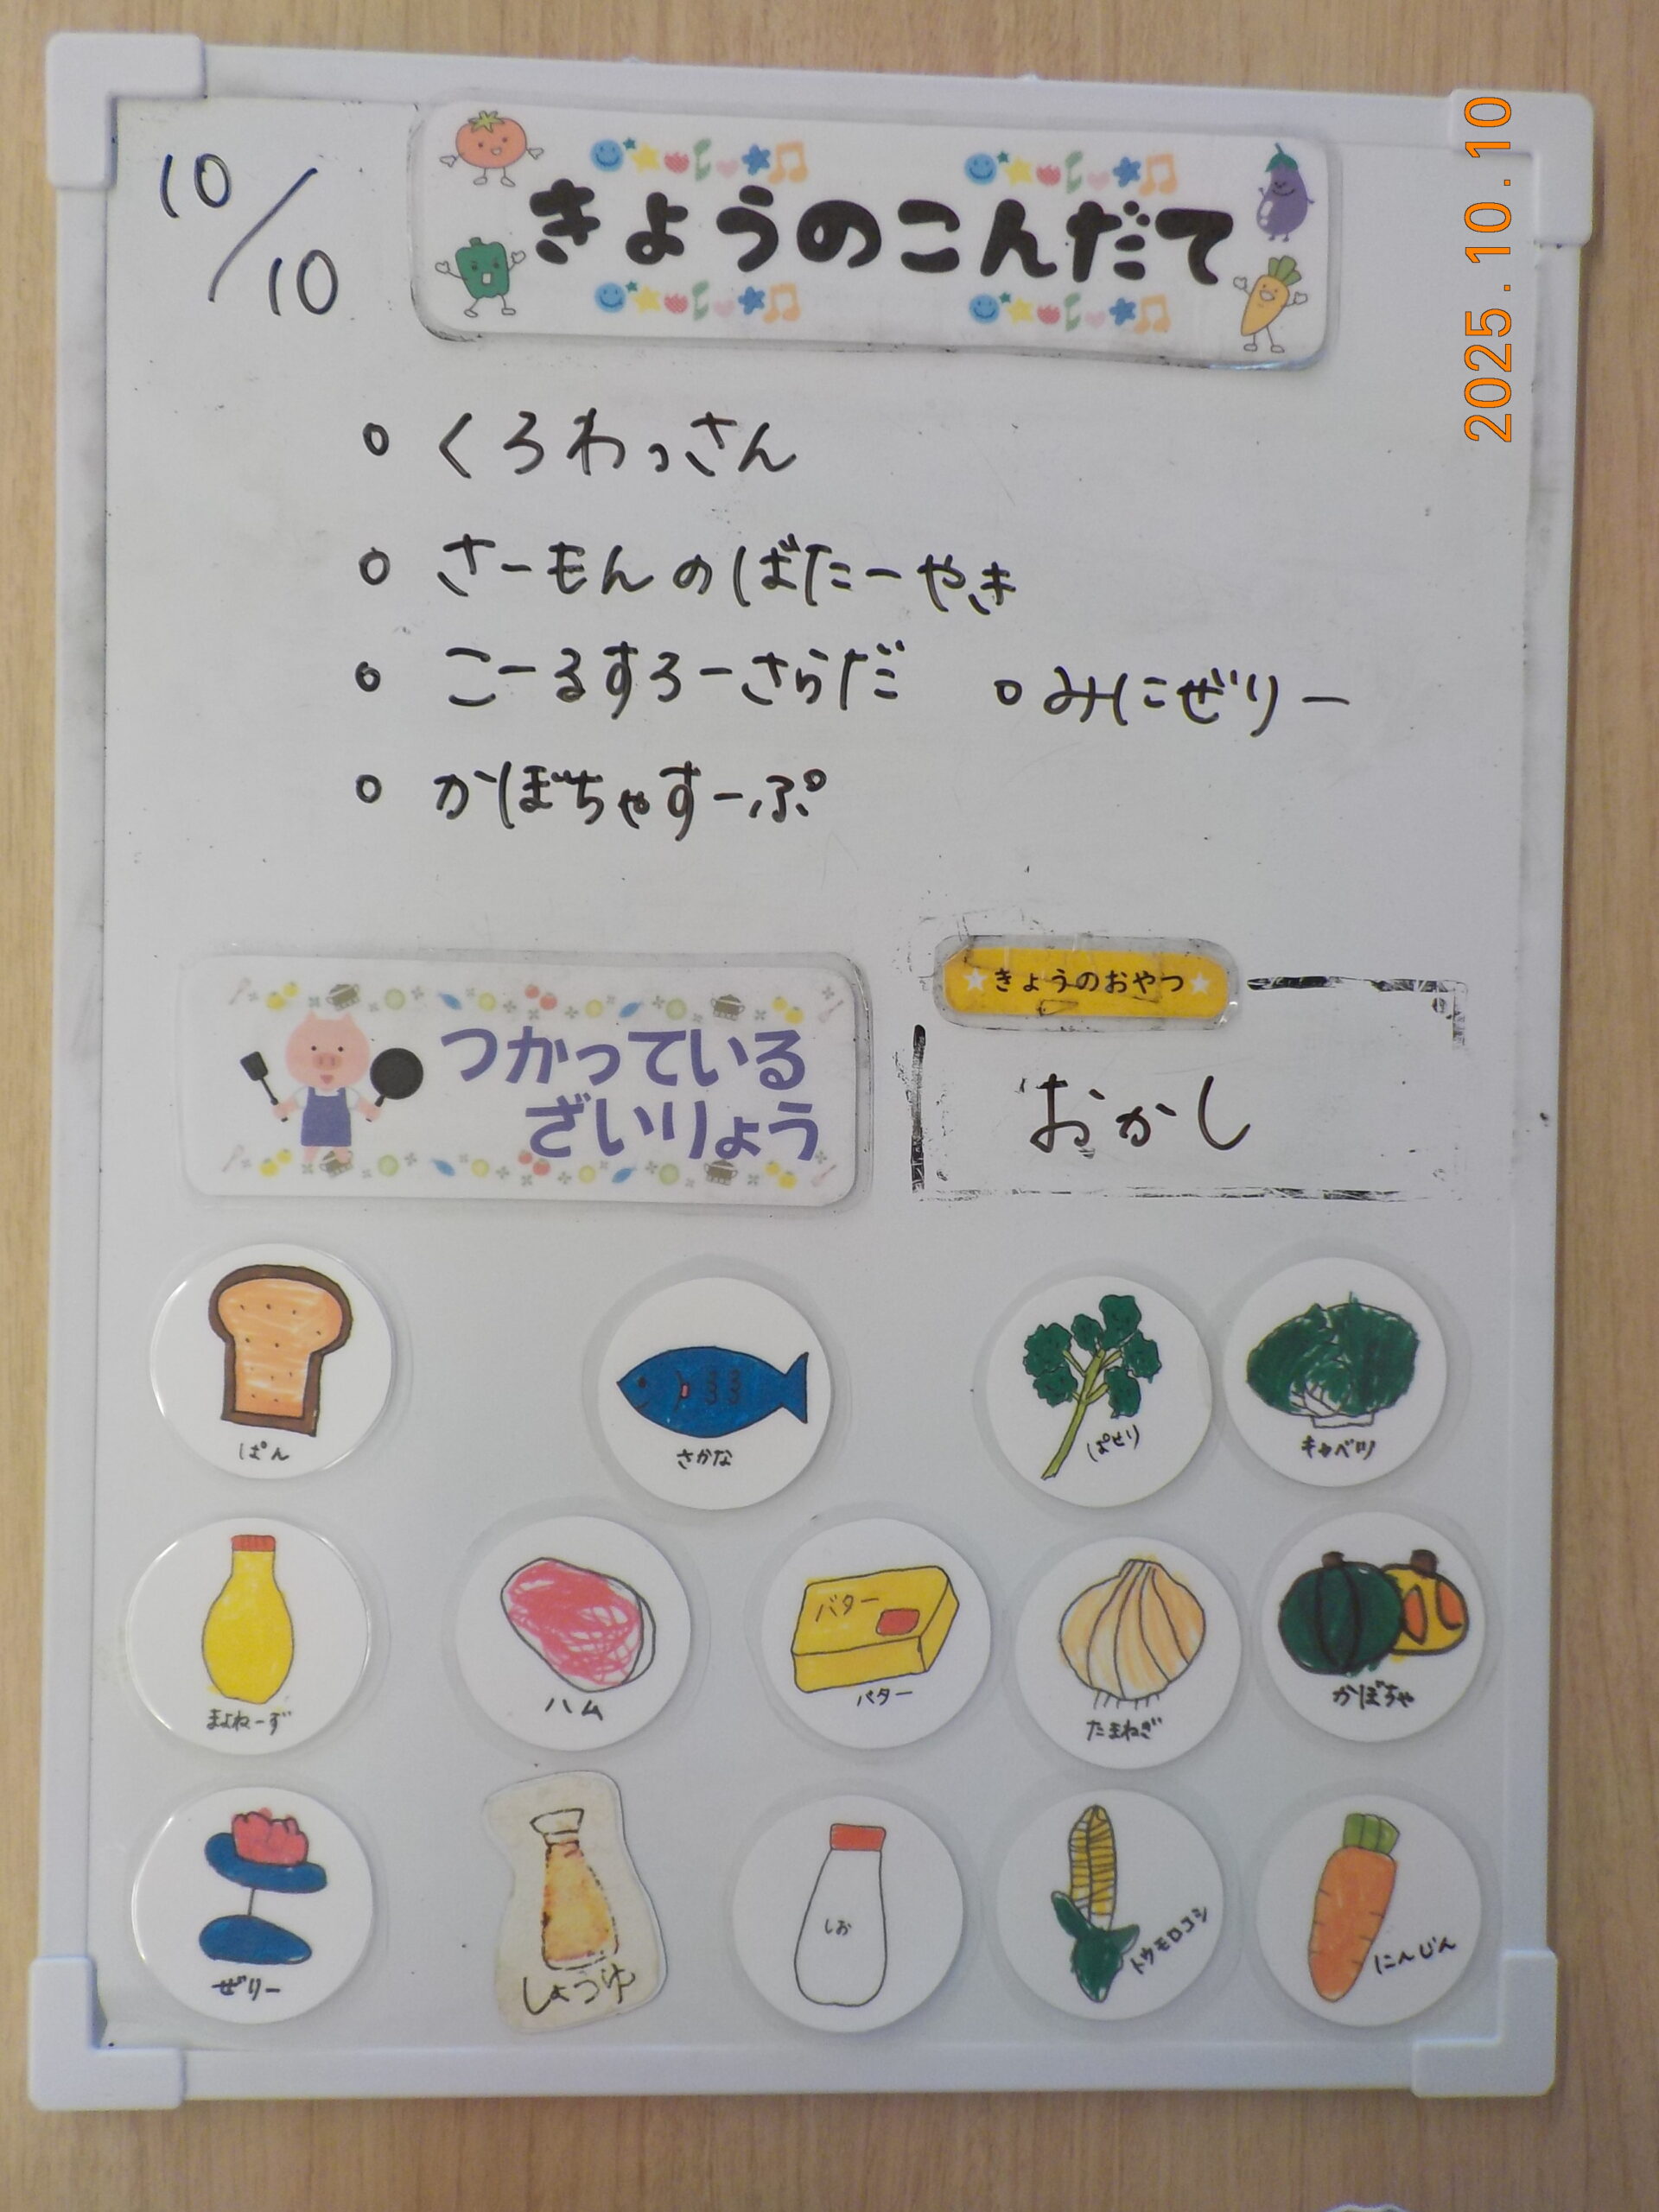 10/10
きょうのこんだて
2025.10.10
○ くろわっさん
○ さーもんのばたーやき
○ こーるすろーさらだ ○みにぜりー
○ かぼちゃすーぷ
つかっている
ざいりょう
★きょうのおやつ★
おかし
ぱん
さかな
ぱせり
キャベツ
まよねーず
ハム
バター
バター
たまねぎ
かぼちゃ
ぜリー
しょうゆ
しお
トウモロコシ
にんじん